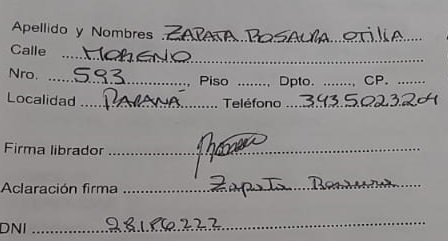 Apellido y Nombres ZAPATA ROSAURA OTILIA
Calle MORENO
Nro. 593, Piso ........, Dpto. ........ CP. ........
Localidad PARANÁ Teléfono 3435023204
Firma librador
Aclaración firma Zapata Rosaura
DNI 28186222